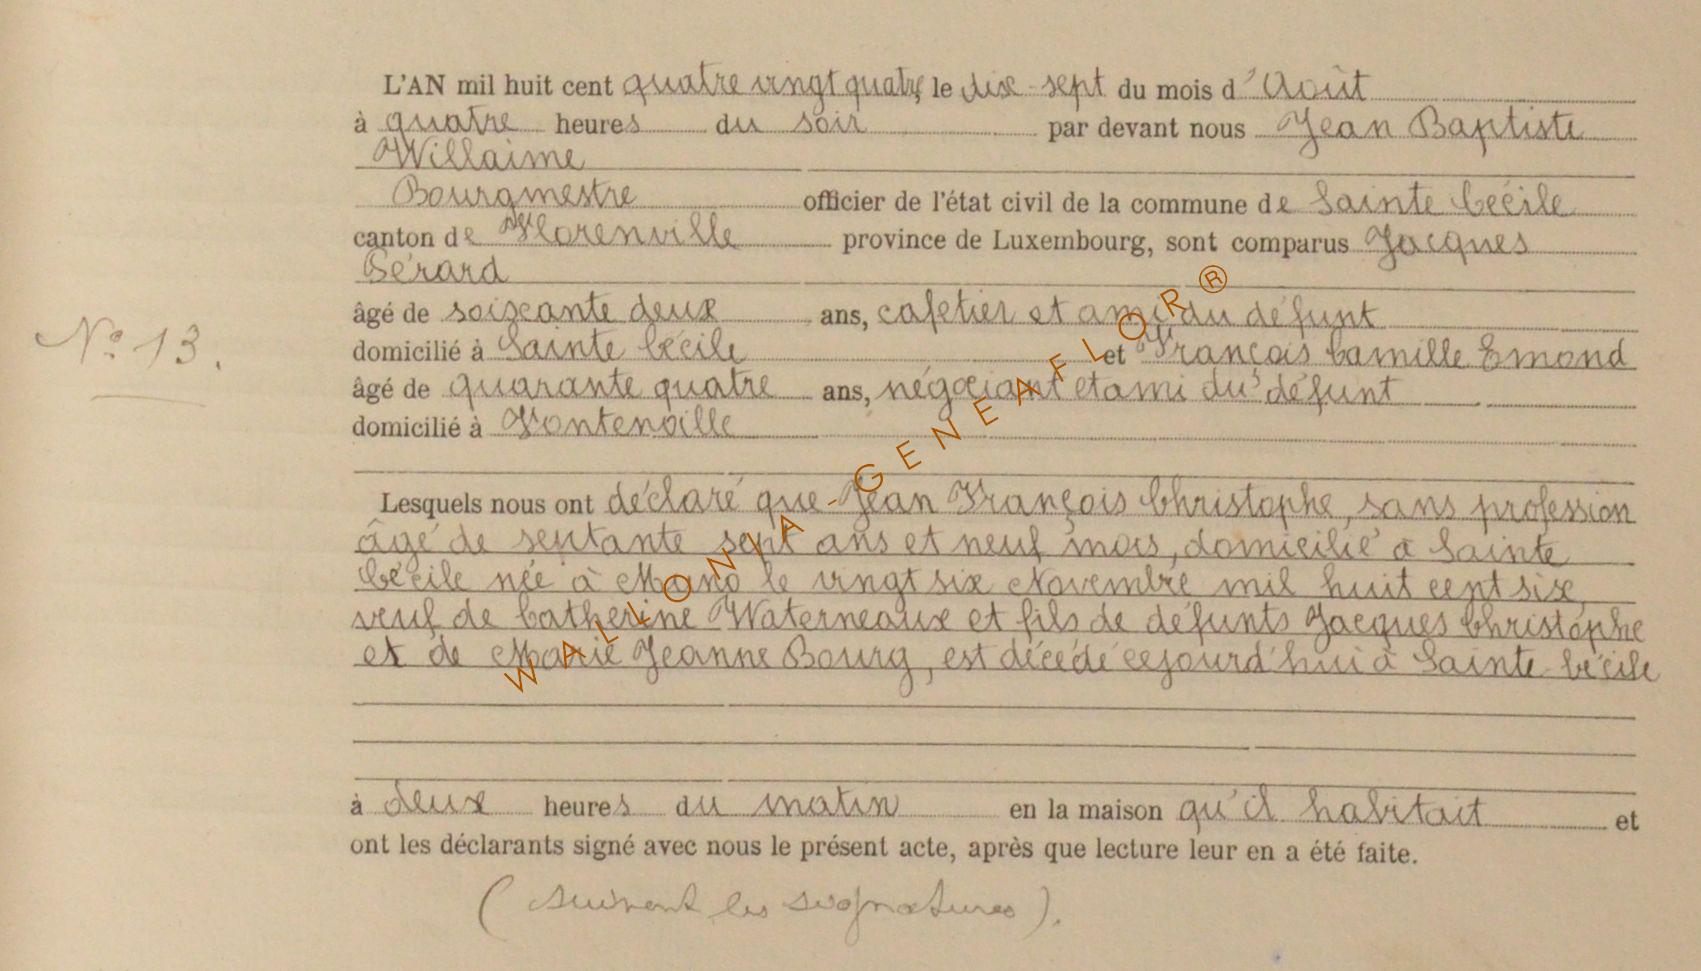 L'AN mil huit cent quatre vingt quatre, le dix-sept du mois d'Août
à quatre heures du soir par devant nous Jean Baptiste
Willaime
Bourgmestre officier de l'état civil de la commune de Sainte Cécile
canton de Florenville province de Luxembourg, sont comparus Jacques
Gérard
âgé de soixante deux ans, cafetier et ami du défunt
N° 13.
domicilié à Sainte Cécile et François Camille Emond
âgé de quarante quatre ans, négociant et ami du défunt
domicilié à Fontenoille
Lesquels nous ont déclaré que Jean François Christophe, sans profession
âgé de septante sept ans et neuf mois, domicilié à Sainte
Cécile née à Muno le vingt six Novembre mil huit cent six,
veuf de Catherine Waterneaux et fils de défunts Jacques Christophe
et de Marie Jeanne Bourg, est décédé cejourd'hui à Sainte-Cécile
à deux heures du matin en la maison qu'il habitait et
ont les déclarants signé avec nous le présent acte, après que lecture leur en a été faite.
(suivent les signatures).
WALLONIA-GENEAFLOR®